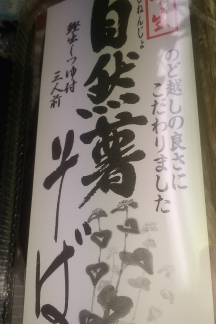 のど越しの良さに
こだわりました
じねんじょ
自然薯
そば
鰹だしつゆ付
三人前